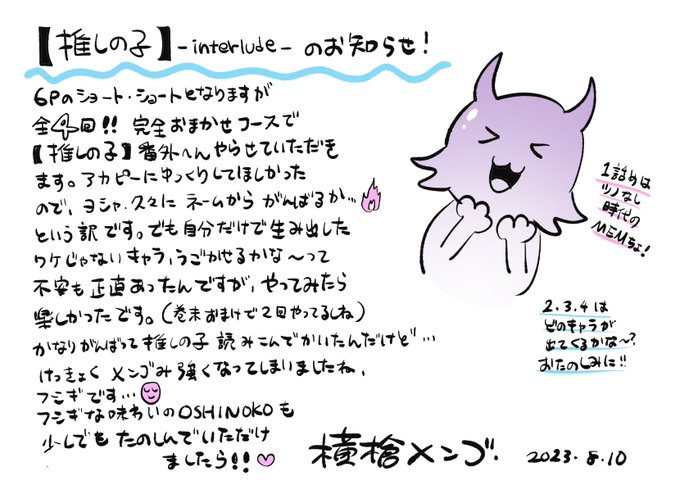 【推しの子】-interlude- のお知らせ!
6Pのショート・ショートとなりますが
全4回!! 完全おまかせコースで
【推しの子】番外へんやらせていただき
ます。アカピーにゆっくりしてほしかった
ので、ヨシャ、久々に ネームから がんばるか…
という訳です。でも自分だけで生み出した
ワケじゃないキャラ、うごかせるかな〜って
不安も正直あったんですが、やってみたら
楽しかったです。(巻末おまけで2回やってるしね)
かなりがんばって推しの子 読みこんでかいたんだけど…
けっきょく メンゴみ強くなってしまいましたね。
フシギです…
フシギな味わいのOSHINOKOも
少しでも たのしんでいただけ
ましたら!!
横槍メンゴ.
2023.8.10
1話めは
ツノなし
時代の
MEMちょ!
2.3.4は
どのキャラが
出てくるかな〜?
おたのしみに!!